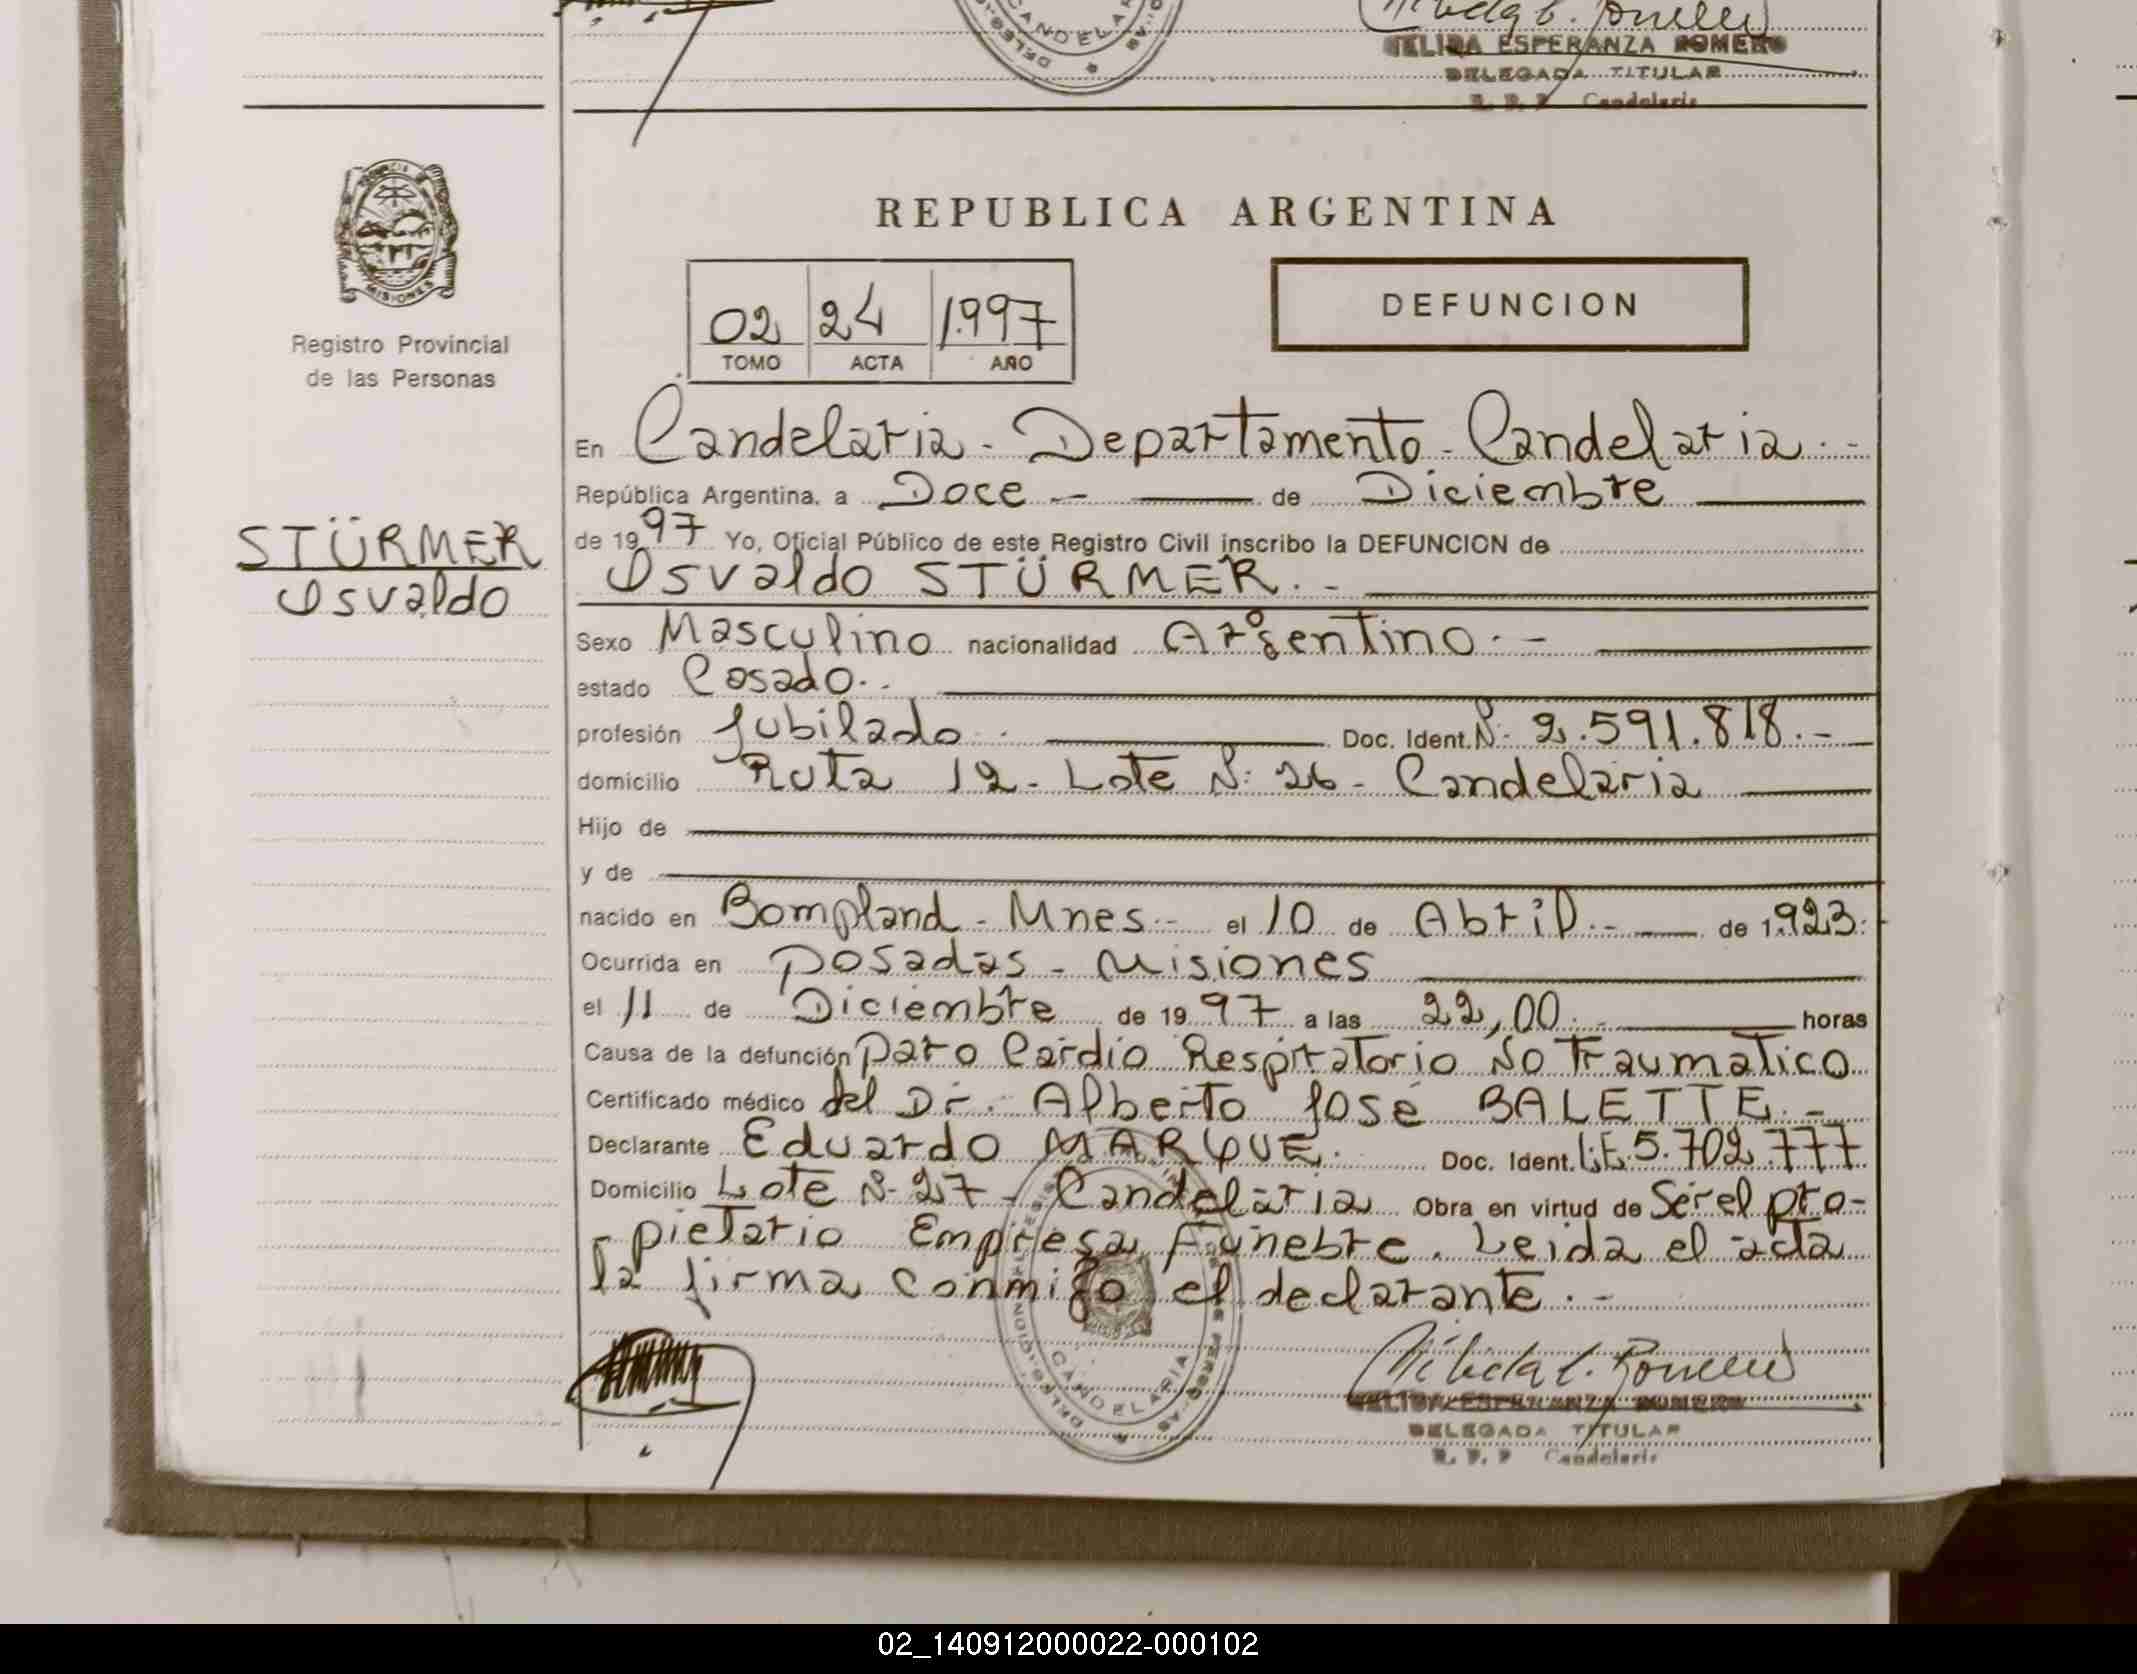 NELIDA ESPERANZA ROMERO
DELEGADA TITULAR
R. P. P. Candelaria
PROVINCIA DE
MISIONES
Registro Provincial
de las Personas
STÜRMER
Osvaldo
REPUBLICA ARGENTINA
02 24 1.997
TOMO ACTA AÑO
DEFUNCION
En Candelaria - Departamento - Candelaria . -
República Argentina, a Doce - de Diciembre
de 1997 Yo, Oficial Público de este Registro Civil inscribo la DEFUNCION de
Osvaldo STÜRMER. -
Sexo Masculino nacionalidad Argentino . -
estado Casado. .
profesión Jubilado . Doc. Ident. Nº 2.591.818. -
domicilio Ruta 12 - Lote Nº 26 - Candelaria
Hijo de
y de
nacido en Bompland - Mnes. - el 10 de Abril. - de 1.923.
Ocurrida en Posadas - Misiones
el 11 de Diciembre de 1997 a las 22,00 . - horas
Causa de la defunción Paro Cardio Respiratorio No Traumatico
Certificado médico del Dr. Alberto José BALETTE. -
Declarante Eduardo MARQUE. Doc. Ident. L.E. 5.702.777
Domicilio Lote Nº 27 - Candelaria Obra en virtud de Ser el pro-
pietario Empresa Fúnebre. Leida el acta
la firma conmigo el declarante . -
CANDELARIA
NELIDA ESPERANZA ROMERO
DELEGADA TITULAR
R. P. P. Candelaria
02_140912000022-000102